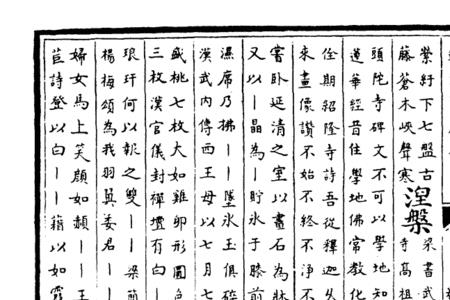 縈紆下七盤古
藤蒼木峽聲寒涅槃梁書武
寺高祖
頭陀寺碑文不可以學地知
道華經音住學地佛常教化
侄期紹隆寺詩吾從釋迦久
來畫像讚不始不終不淨不
嘗臥延清之室以畫石為牀
又以丨晶為丨貯氷于膝前
濕席乃拂丨丨墜氷玉俱碎
漢武内傳西王母以七月七
盛桃七枚大如雞卵形圓色
三枚漢官儀封禪壇有白丨
琅玕何以報之雙丨丨梁簡
楊梅頌為我羽奠委君丨丨
婦女馬上笑顔如頳丨丨王
苣詩登以白丨丨藉以如霞